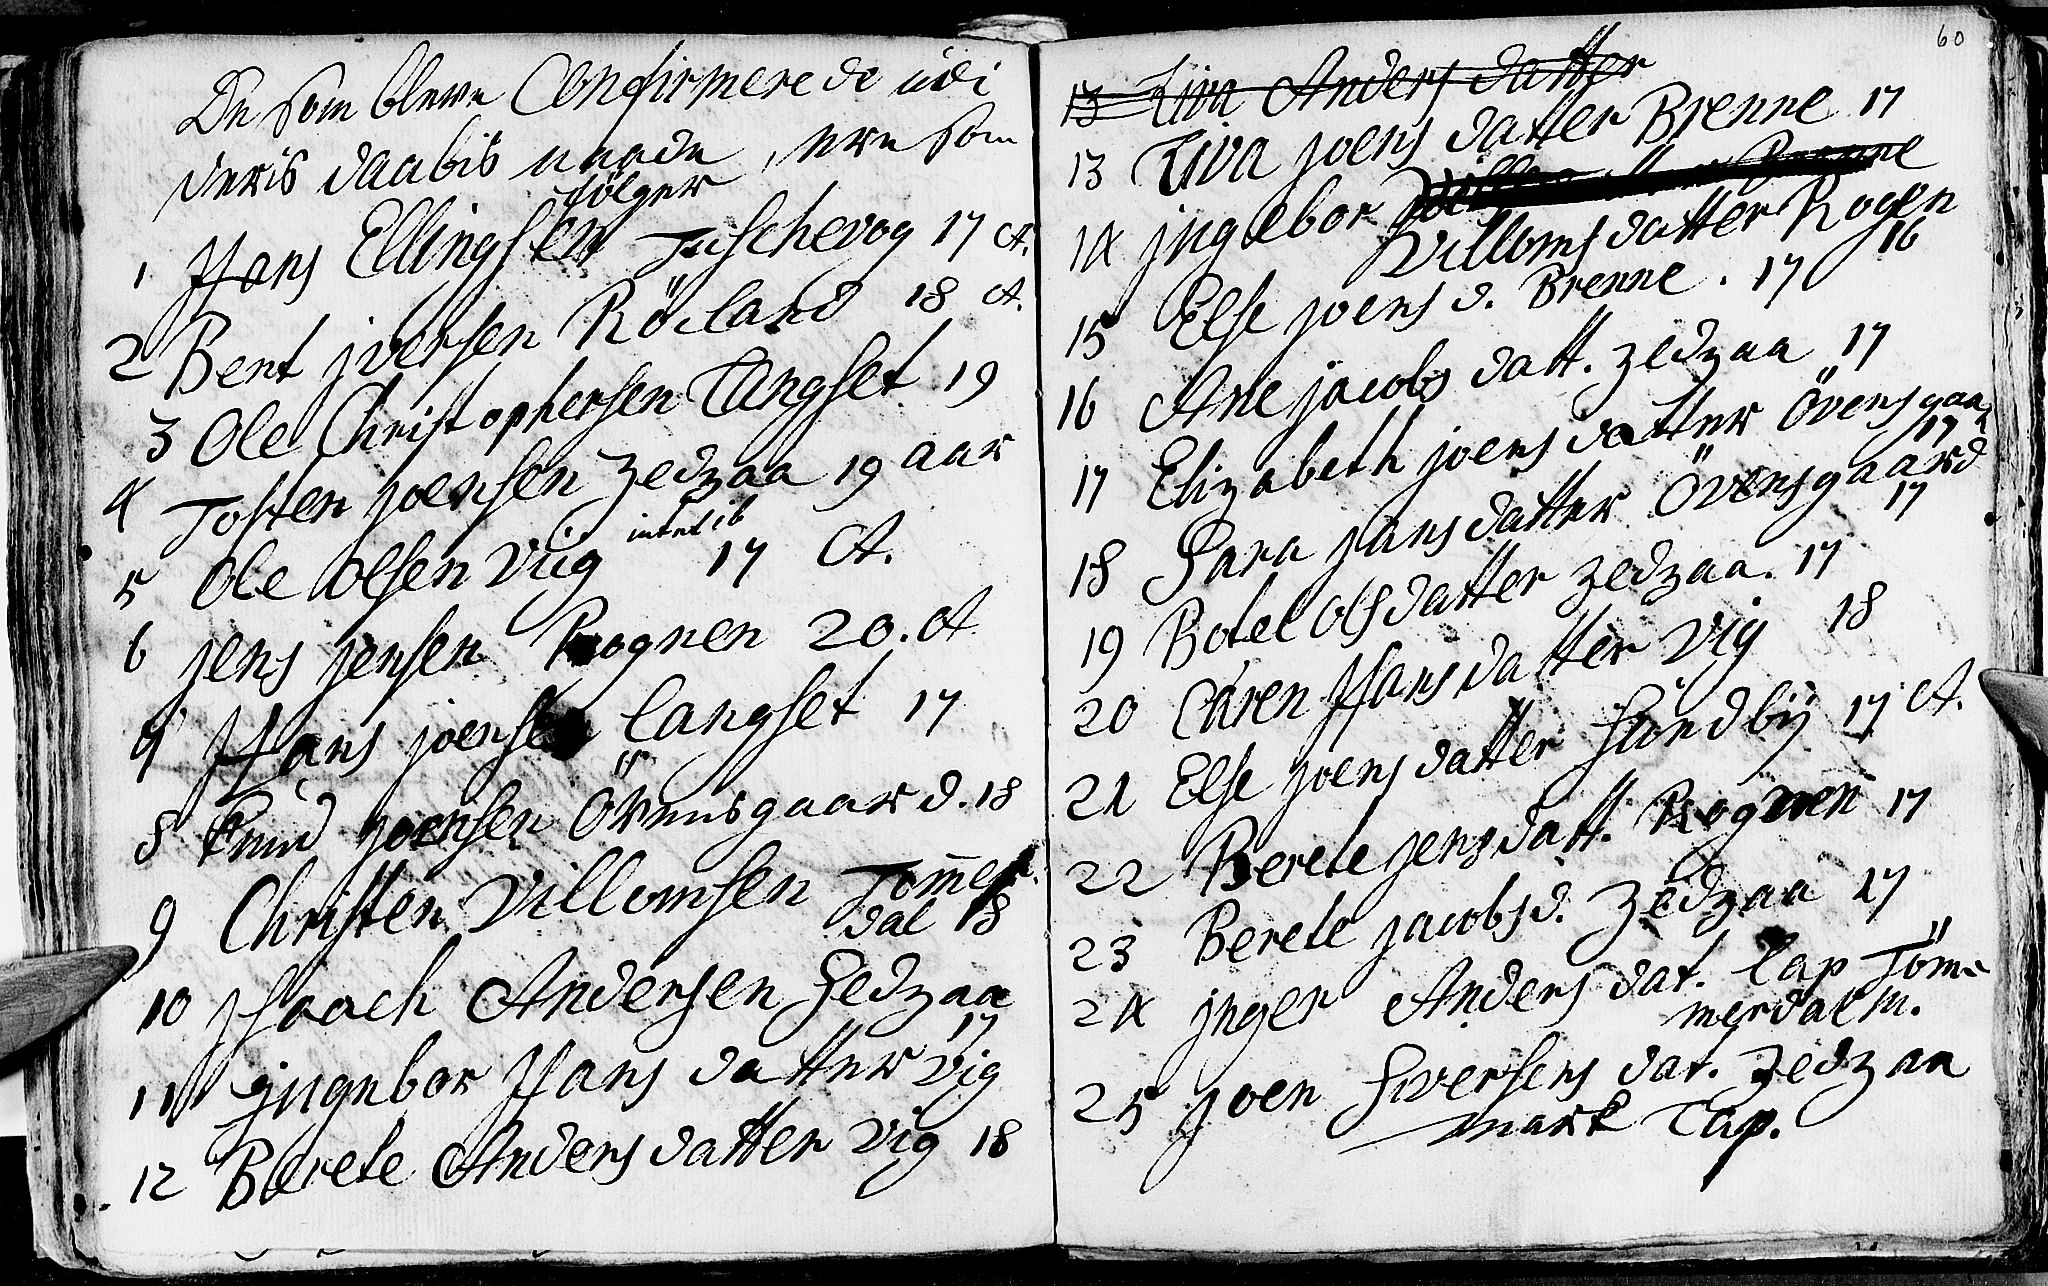 De som bleve Confirmerede udi
deris daabis naade, ere som
følger
1 Hans Ellingsen Tuschevog 17 A.
2 Bent jversen Röcland 18 A.
3 Ole Christophersen Langset 19
4 Tosten joensen Zedzaa 19 aar
5 Ole Olsen Viig 17 A.
6 jens jensen Rognen 20. A
7 Hans joensen Langset 17
8 Knud joensen Övensgaard. 18
9 Christen Villomsen Tom̄er
dal 18
10 Jsaach Andersen Sedzaa
17
11 jngebor Hans datter Vig
12 Berete Anders datter Vig 18
60
13 Liva Anders datter
13 Liva joens datter Brenne 17
14 jngebor
Villoms datter Rogen
16
15 Else joens d. Brenne. 17
16 Ane jacobs datt. Zedzaa 17
17 Elizabeth joens datter Övensgaar
17
18 Sara jans datter Övensgaard
17
19 Botel Ols datter Zedzaa. 17
20 Caren Hans datter Vig 18
21 Else joens datter Sundbÿ 17 A.
22 Berete jens datt. Rognen 17
23 Berete jacobs d. Zedzaa 17
24 jnger Anders dat. Lap Töm-
merdal m.
25 joen Siversens dat. Zedzaa
mark Lap.